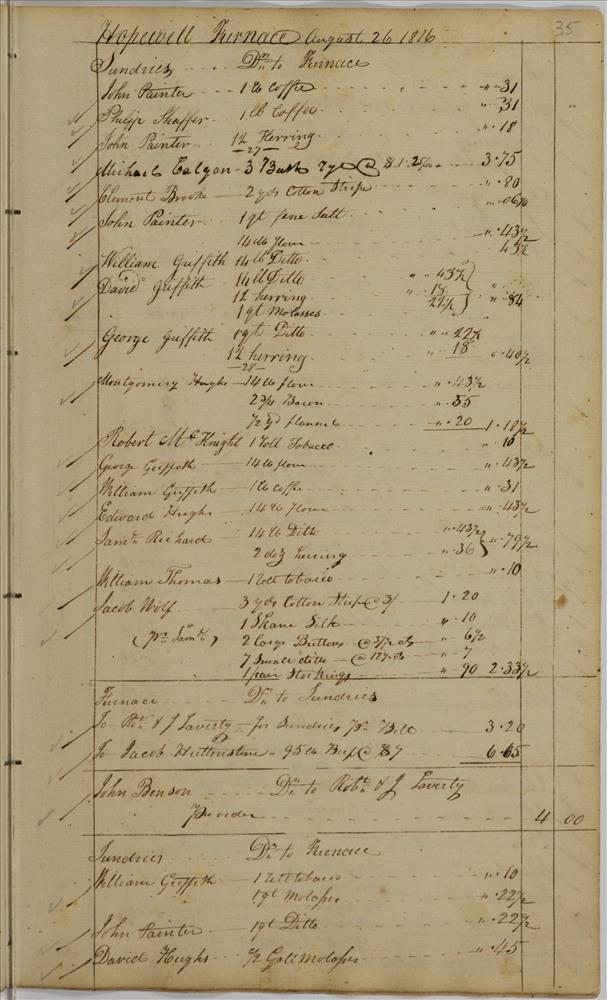 35
Hopewell Furnace August 26 1816
Sundries Drs to Furnace
John Painter 1 lb Coffee " 31
Philip Shaffer 1 lb Coffee " 31
John Painter 12 Herring " 18
27
Michael 3 Bush Rye @ $1.25 3.75
Clement Brooke 2 yds Cotton Stripe " 80
John Painter 1 qt fine Salt " 06¼
14 lb flour " 43½
William Griffith 14 lb Ditto 43½
David Griffith 14 lb Ditto " " 43½
12 herring " 18
1 qt Molasses 22½ " 84
George Griffith 1 qt Ditto " " 22½
12 herring " 18 " 40½
28
Montgomery Hughs 14 lb flour " 43½
2¾ Bacon " 55
½ yd flannel " 20 1.18½
Robert McKnight 1 Roll Tobacco " 10
George Griffith 14 lb flour " 43½
William Griffith 1 lb Coffee " 31
Edward Hughs 14 lb flour " 43½
Saml Richard 14 lb Ditto " 43½
2 doz herring " 36 " 79½
William Thomas 1 Roll tobacco " 10
Jacob Wolf 3 yds Cotton Stripe @ 3/ 1.20
1 Skane Silk " 10
(pr Saml) 2 large Buttons @ " 6½
7 Small ditto @ " 7
1 pair Stockings " 90 2.33½
Furnace Dr to Sundries
To Robt & J Laverty for Sundries pr Bill 3.20
To Jacob 95 lb Beef @ $7 6.65
John Benson Dr to Robt & J Laverty
pr order 4 00
Sundries Drs to Furnace
William Griffith 1 Roll tobacco " 10
1 qt Molasses " 22½
John Painter 1 qt Ditto " 22½
David Hughs ½ Gall Molasses " 45